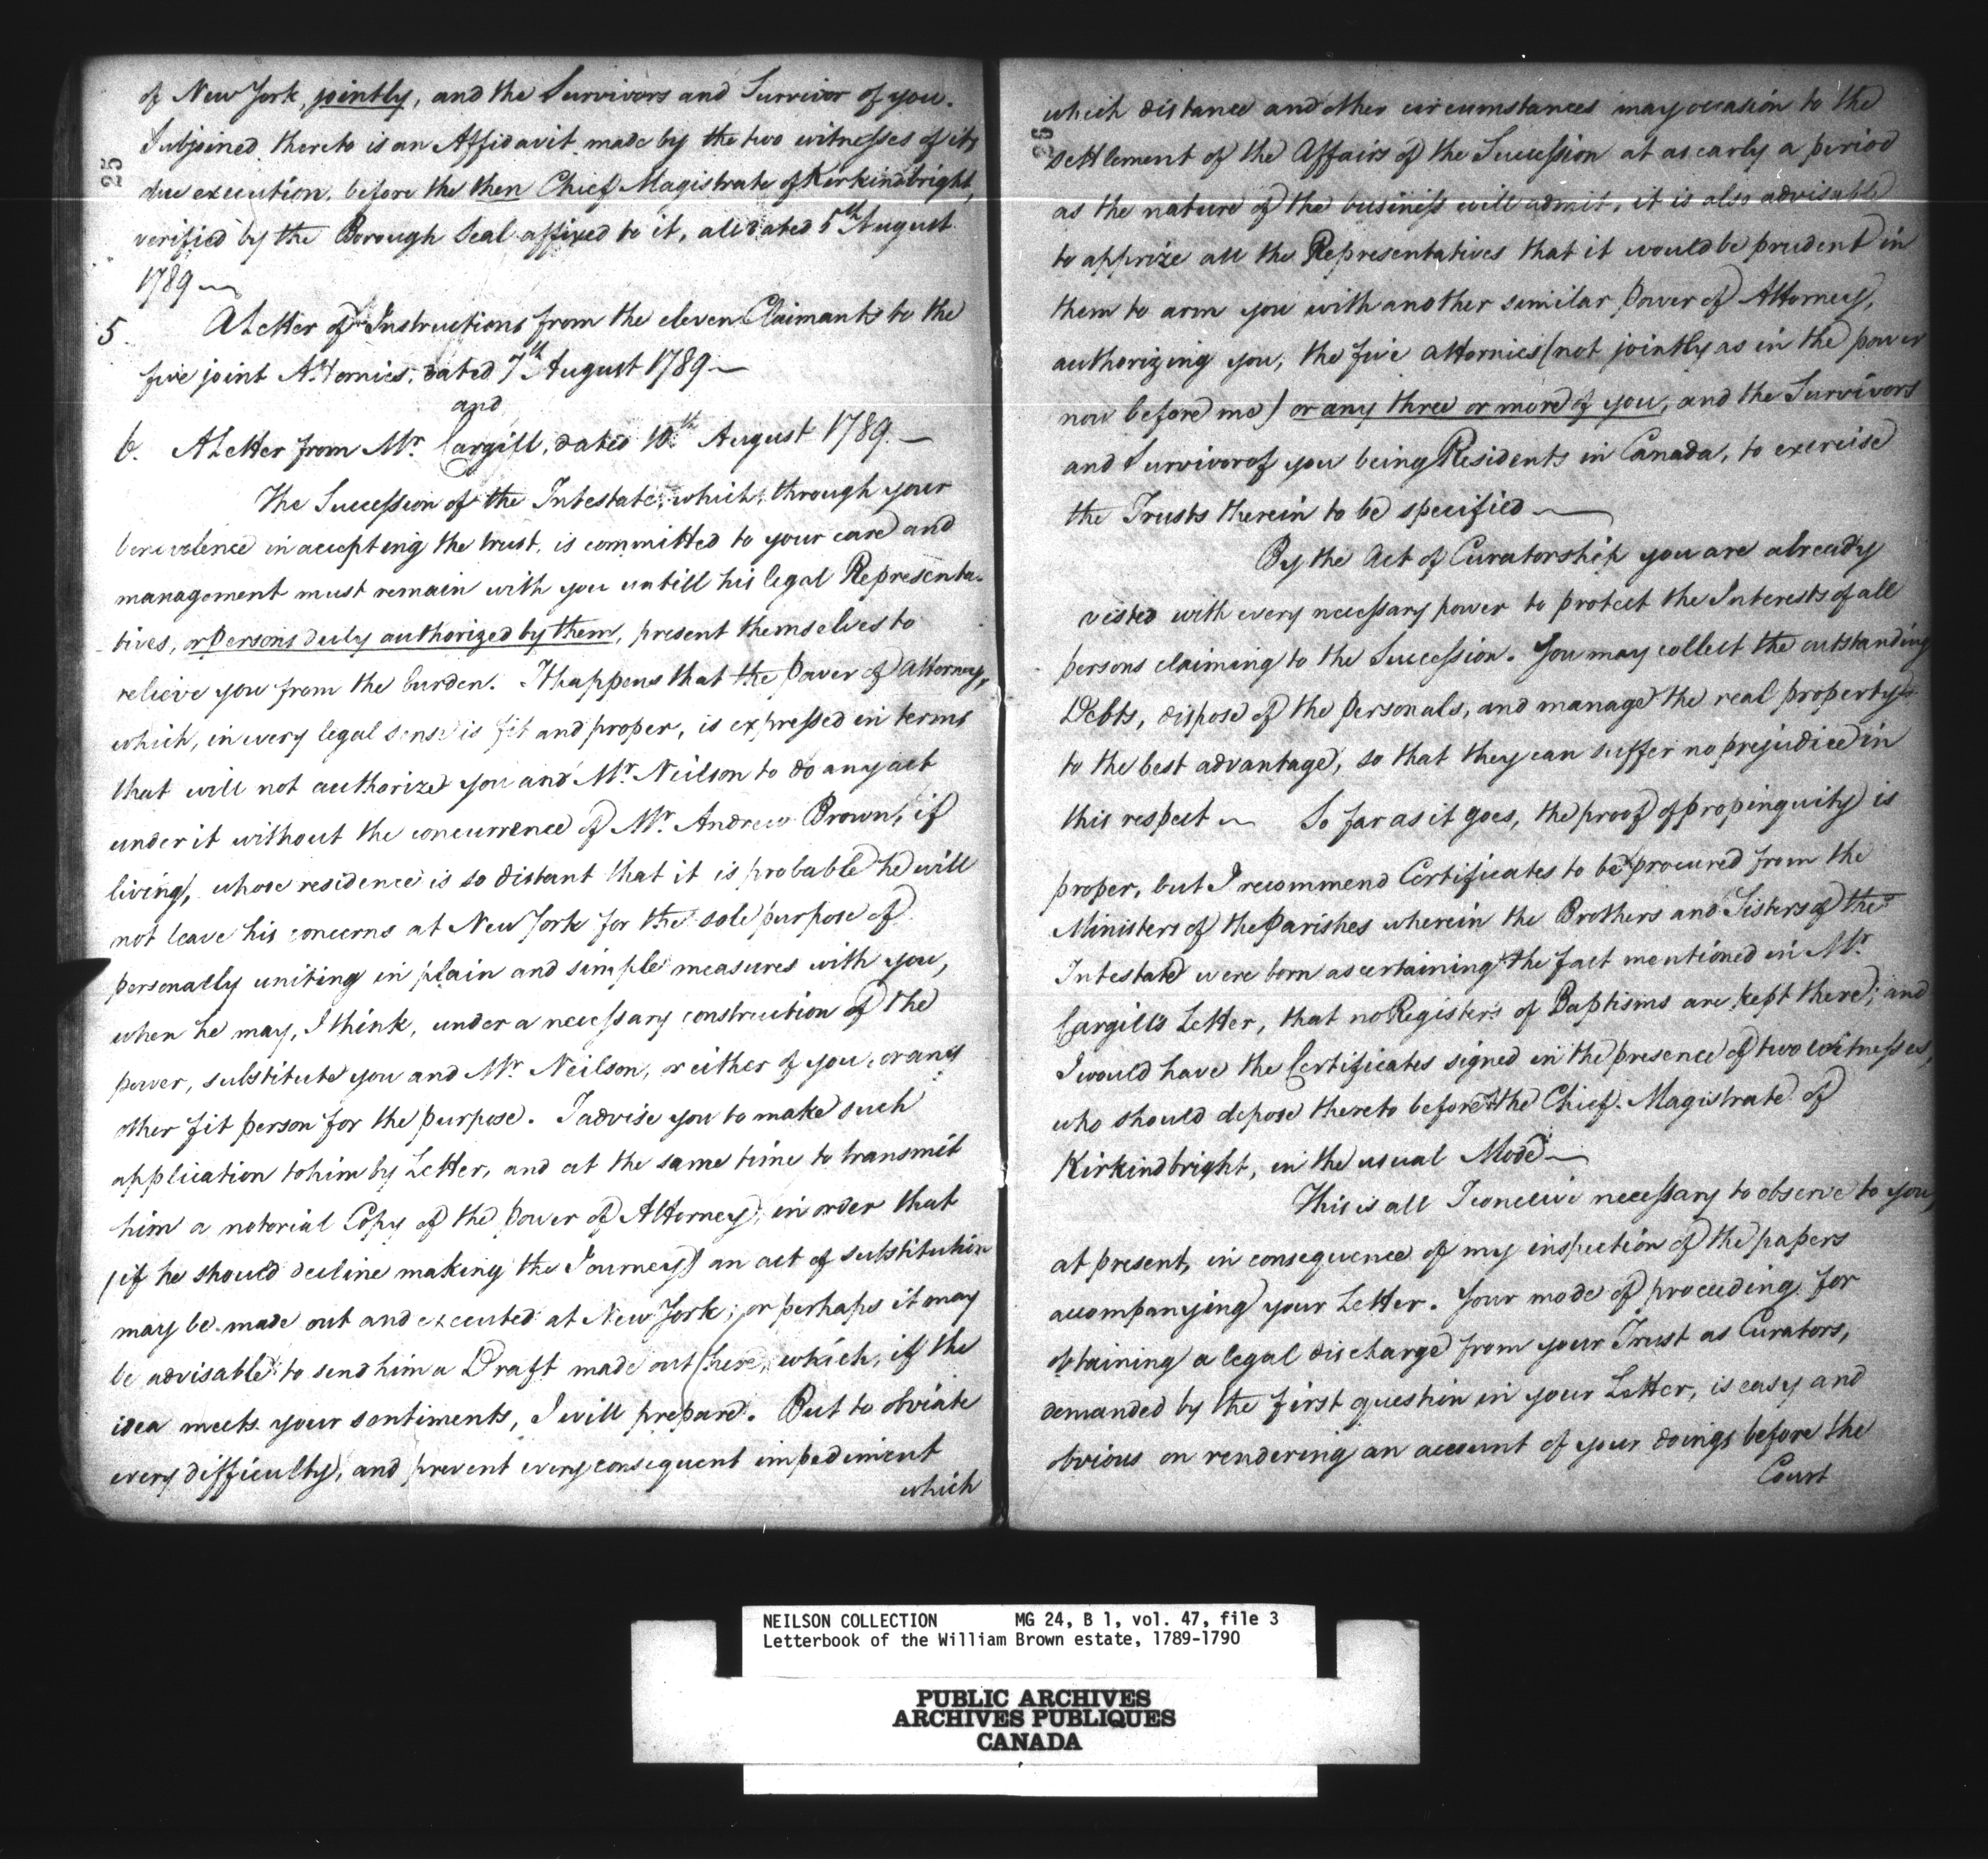 25
of New York, jointly, and the Survivors and Survivor of you.
Subjoined thereto is an Affidavit made by the two witnesses of its
due execution, before the then Chief Magistrate of Kirkindbright,
verified by the Borough Seal affixed to it, all dated 5th August
1789 —
5 A Letter of Instructions from the eleven Claimants to the
five joint Attornies, dated 7th August 1789 —
and
6. A Letter from Mr. Cargill, dated 10th August 1789. —
The Succession of the Intestate, which, through your
benevolence in accepting the trust, is committed to your care and
management must remain with you untill his legal Representa-
tives, or Persons duly authorized by them, present themselves to
relieve you from the burden. It happens that the Power of Attorney,
which, in every legal sense is fit and proper, is expressed in terms
that will not authorize you and Mr. Neilson to do any act
under it without the concurrence of Mr. Andrew Brown, if
living, whose residence is so distant that it is probable he will
not leave his concerns at New York for the sole purpose of
personally uniting in plain and simple measures with you,
when he may, I think, under a necessary construction of the
power, substitute you and Mr. Neilson, or either of you, or any
other fit person for the purpose. I advise you to make such
application to him by Letter, and at the same time to transmit
him a notorial Copy of the Power of Attorney, in order that
(if he should decline making the Journey) an act of substitution
may be made out and executed at New York; or perhaps it may
be advisable to send him a Draft made out here, which, if the
idea meets your sentiments, I will prepare. But to obviate
every difficulty, and prevent every consequent impediment
which
26
which distance and other circumstances may occasion to the
settlement of the Affairs of the Succession at as early a period
as the nature of the business will admit, it is also advisable
to apprize all the Representatives that it would be prudent in
them to arm you with another similar Power of Attorney,
authorizing you, the five attornies (not jointly as in the power
now before me) or any three or more of you, and the Survivors
and Survivor of you being Residents in Canada, to exercise
the Trusts therein to be specified —
By the Act of Curatorship you are already
vested with every necessary power to protect the Interests of all
persons claiming to the Succession. You may collect the outstanding
Debts, dispose of the Personals, and manage the real property
to the best advantage, so that they can suffer no prejudice in
this respect — So far as it goes, the proof of propinquity is
proper, but I recommend Certificates to be procured from the
Ministers of the Parishes wherein the Brothers and Sisters of the
Intestate were born ascertaining the fact mentioned in Mr.
Cargill's Letter, that no Registers of Baptisms are kept there; and
I would have the Certificates signed in the presence of two witnesses,
who should depose thereto before the Chief Magistrate of
Kirkindbright, in the usual Mode —
This is all I conceive necessary to observe to you,
at present, in consequence of my inspection of the papers
accompanying your Letter. Your mode of proceeding for
obtaining a legal discharge from your Trust as Curators,
demanded by the first question in your Letter, is easy and
obvious on rendering an account of your doings before the
Court
NEILSON COLLECTION MG 24, B 1, vol. 47, file 3
Letterbook of the William Brown estate, 1789-1790
PUBLIC ARCHIVES
ARCHIVES PUBLIQUES
CANADA